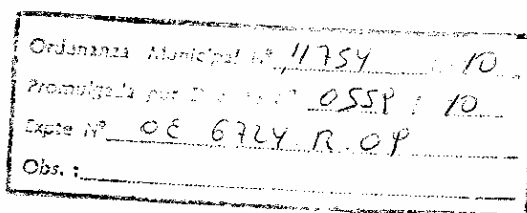 Ordenanza Municipal Nº 11754 / 10
Promulgada por Decreto Nº 0559 / 10
Expte Nº OE 6724 R 09
Obs. :